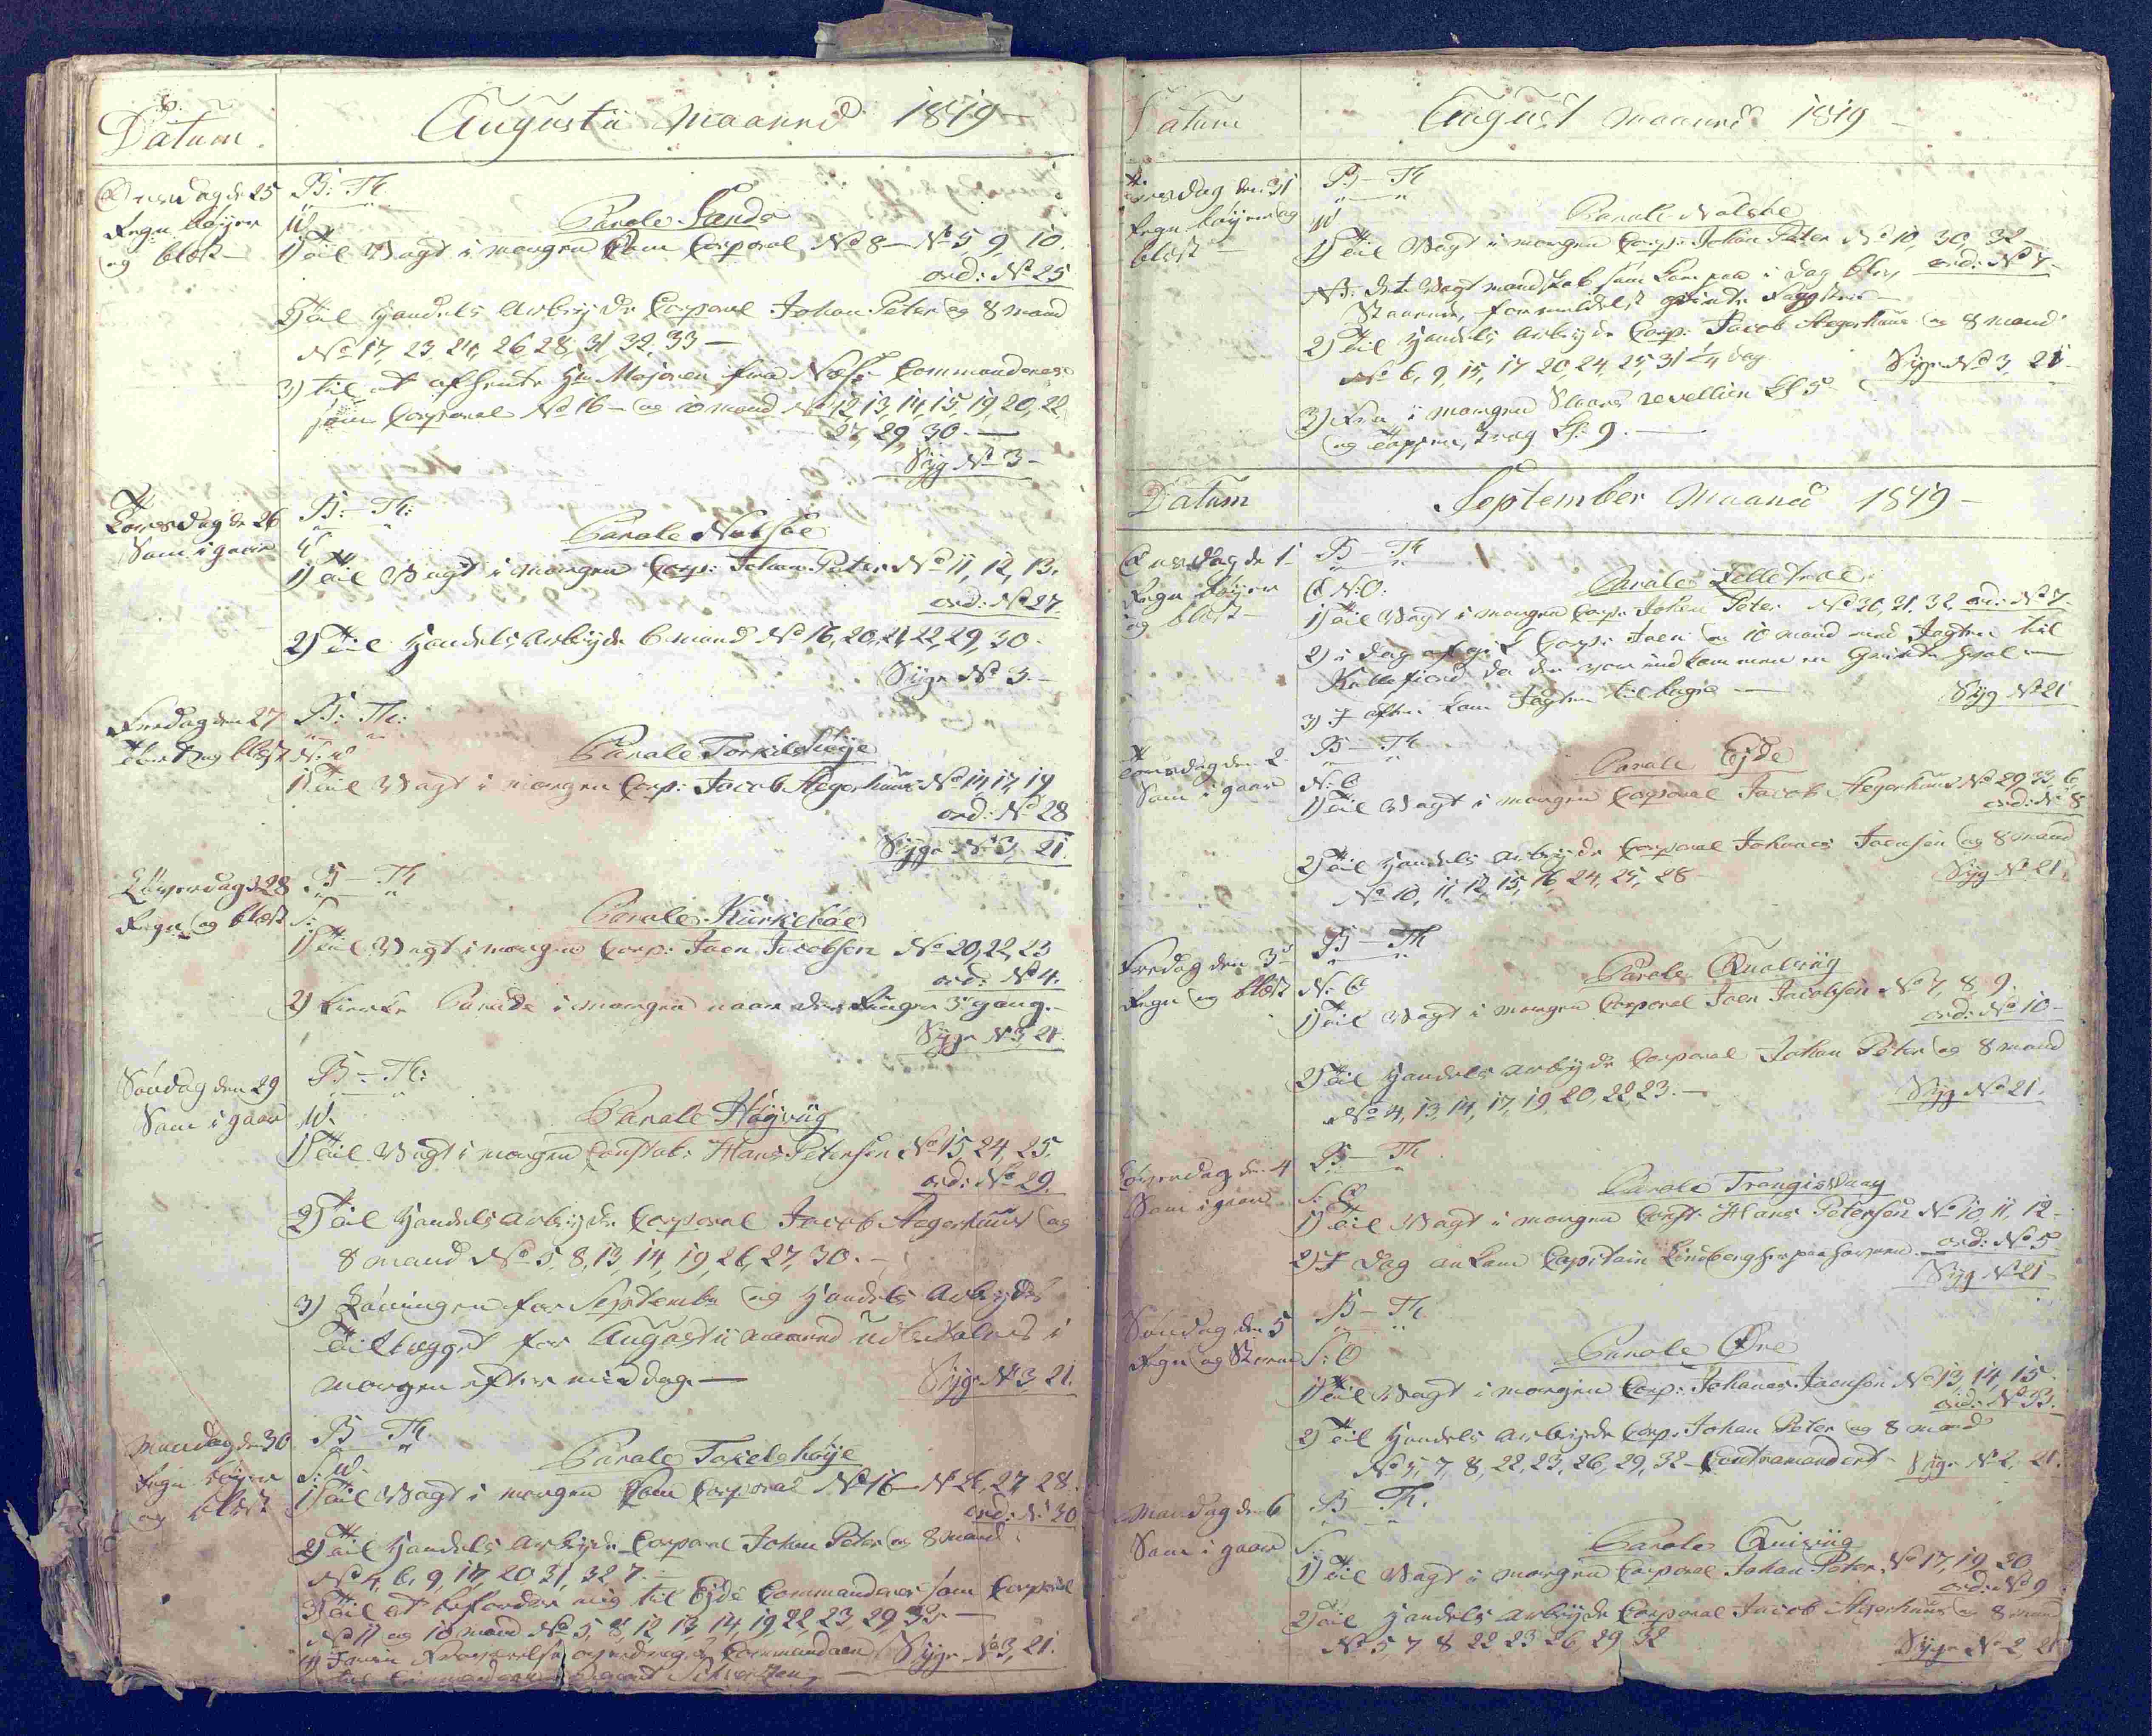 6.
Datum.
Augustii Maaned 1819 –
Onsdag d. 25 B: Th
Regn bøyer W. Parole Sands
og blæst – 1) Til Vagt i morgen som Corporal No 8 – No 5, 9, 10
ord: No 25
2) Til Handels Arbeyde Corporal Johan Peter og 8 mand
No 17, 23, 24, 26, 28, 31, 32, 33 –
3) til at afhente Hr Majoren fra Næss Commanderes
som Corporal No 16 – og 10 mand No 12, 13, 14, 15, 19, 20, 22,
27, 29, 30. –
Syg No 3 –
Torsdag d. 26 B: – Th:
Som i gaar Parole Nolsøe
1) Til Vagt i morgen Corp: Johan Peter No 11, 12, 13.
ord: No 27
2) Til Handels Arbeyde 6 mand No 16, 20, 21, 22, 29, 30.
Syge No 3. –
Fredag den 27 B: Th:
og blæst N: W Parole Torkilshøye
1) Til Vagt i morgen Corp: Jacob Aegerhuus No 14, 17, 19
ord: No 28
Syge No 3, 21.
Løverdag d. 28 B – Th
Regn og blæst S: Parole Kirkebøe
1) Til Vagt i morgen Corp: Joen Jacobsen No 20, 22, 23
ord: No 4.
2) Kirke Parade i morgen naar der Ringer 3die gang. –
Syge No 3, 21.
Søndag den 29 B – Th:
Som i gaar W. Parole Høyviig
1) Til Vagt i morgen Constab: Hans Petersen No 15, 24, 25.
ord: No 29.
2) Til Handels Arbeyde Corporal Jacob Aegerhuus og
8 mand No 5, 8, 13, 14, 19, 26, 27, 30. –
3) Løningen for September og Handels Arbeyds
Tillægget for Augustii maaned udbetales i
morgen efter middag. – Syge No 3, 21.
Mandag d. 30 B – Th
Regn bøyer S: W. Parole Torkelshøye
og blæst 1) Til Vagt i morgen som Corporal No 16 – No 26, 27, 28.
ord: No 30
2) Til Handels Arbeyde Corporal Johan Peter og 8 mand
No 4, 6, 9, 17, 20, 31, 32, 7. –
3) Til at befordre mig til Eyde Commanderes som Corporal
No 11 og 10 mand No 5, 8, 12, 13, 14, 19, 22, 23, 29, 33. –
4) Commandoen Syge No 3, 21.
Datum August Maaned 1819 –
Tirsdag den 31 B – Th
Regn bøyer og W Parole Nolsøe
blæst – 1) Til Vagt i morgen Corp: Johan Peter No 10, 30, 32 –
ord: No 7 –
NB: det Vagt mandskab som kom paa i dag blev
2) Til Handels Arbeyde Corp: Jacob Aegerhuus og 8 mand
No 6, 9, 15, 17, 20, 24, 25, 31 1/4 dag Syge No 3, 21 –
3) Fra i morgen Slaaes revellien Kl 5
og Tappenstræg Kl: 9. –
Datum September Maaned 1819 –
Onsdag d. 1 B – Th
Regn bøyer N: O:
og blæst – 1) Til Vagt i morgen Corp: Johan Peter No 30, 31, 32 ord: No 7
2) i dag afgik Corp: Joen og 10 mand med Jagten til
Kallefiord da der var indkommen en Grinde hval –
3) I aften kom Jagten tilbage – Syg No 21
Torsdag den 2 B – Th
Som i gaar N: O Parole Eyde
1) Til Vagt i morgen Corporal Jacob Aegerhuus No 29, 33, 6
ord: No 8
2) Til Handels Arbeyde Corporal Johanes Joensen og 8 mand
No 10, 11, 12, 15, 16, 24, 25, 28 – Syg No 21.
Fredag den 3 B – Th
Regn og blæst N: O Parole Qualviig
1) Til Vagt i morgen Corporal Joen Jacobsen No 7, 8, 9.
ord: No 10 –
2) Til Handels Arbeyde Corporal Johan Peter og 8 mand
No 4, 13, 14, 17, 19, 20, 22, 23. – Syg No 21.
Løverdag den 4 B – Th
Som i gaar S: O Parole Trangisvaag
1) Til Vagt i morgen Const: Hans Petersen No 10, 11, 12 –
ord: No 5
2) I Dag ankom Capitain Lindberg her paa havnen
Syg No 21
Søndag den 5 B – Th
Regn og Storm S: O Parole Øre
1) Til Vagt i morgen Corp: Johanes Joensen No 13, 14, 15 –
ord: No 33.
2) Til Handels Arbeyde Corp: Johan Peter og 8 mand
No 5, 7, 8, 22, 23, 26, 29, 32 – Contramandert – Syge No 2, 21.
Mandag den 6 B – Th.
Som i gaar S: Parole Quiviig
1) Til Vagt i morgen Corporal Johan Peter, No 17, 19, 20
ord: No 9
2) Til Handels Arbeyde Corporal Jacob Aegerhuus og 8 mand
No 5, 7, 8, 22, 23, 26, 29, 32 Syge No 2, 21